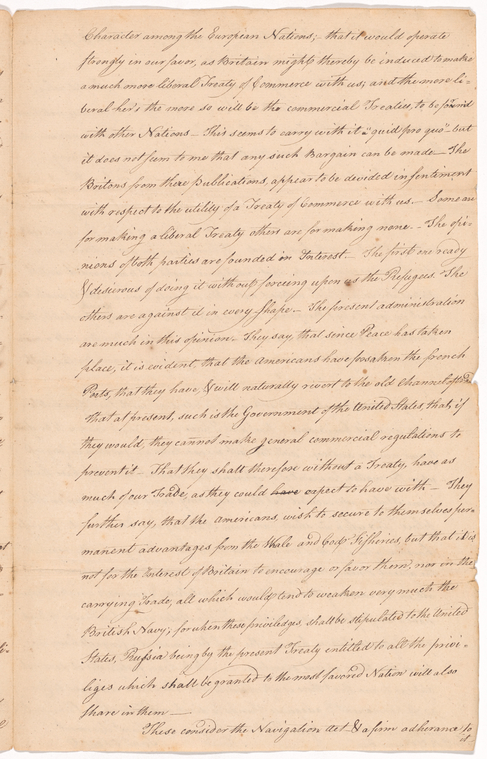 Character among the European Nations; that it would operate
strongly in our favor, as Britain might thereby be induced to make
a much more liberal Treaty of Commerce with us; and the more li-
beral her's the more so will be the commercial Treaties to be form'd
with other Nations_ This seems to carry with it a "quid pro quo"_ but
it does not seem to me that any such Bargain can be made_ The
Britons from there Publications, appear to be divided in sentiment
with respect to the utility of a Treaty of Commerce with us._ Some are
for making a liberal Treaty others are for making none._ The opi-
nions of both parties are founded in Interest._ The first are ready
& desierous of doing it without forceing upon us the Refugees. The
others are against it in every shape._ The present administration
are much in this opinion_ They say, that since Peace has taken
place, it is evident, that the Americans have forsaken the french
Ports, that they have, & will naturally revert to the old channel of Trade
that at present, such is the Government of the United States, that, if
they would, they cannot make general commercial regulations to
prevent it_ That they shall therefore without a Treaty, have as
much of our Trade, as they could have expect to have with_ They
further say, that the Americans, wish to secure to themselves per-
manent advantages from the Whale and Cod Fisheries, but that it is
not for the Interest of Britain to encourage or favor them, nor in the
carrying Trade, all which would tend to weaken very much the
British Navy; for when these priviledges, shall be stipulated to the United
States, Russia being by the present Treaty entitled to all the privi-
liges which shall be granted to the most favored Nation will also
share in them_
These consider the Navigation Act & a firm adherance to
it